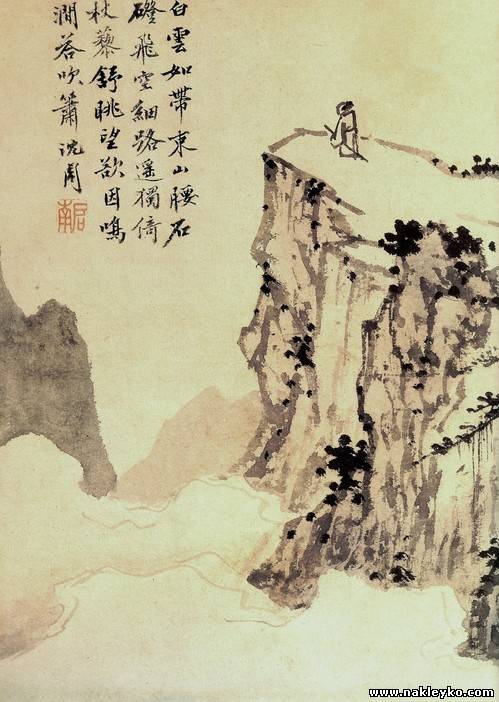 白雲如帶束山腰石
磴飛空細路遙獨倚
杖藜舒眺望欲因鳴
澗荅吹簫 沈周
啟南
www.nakleyko.com